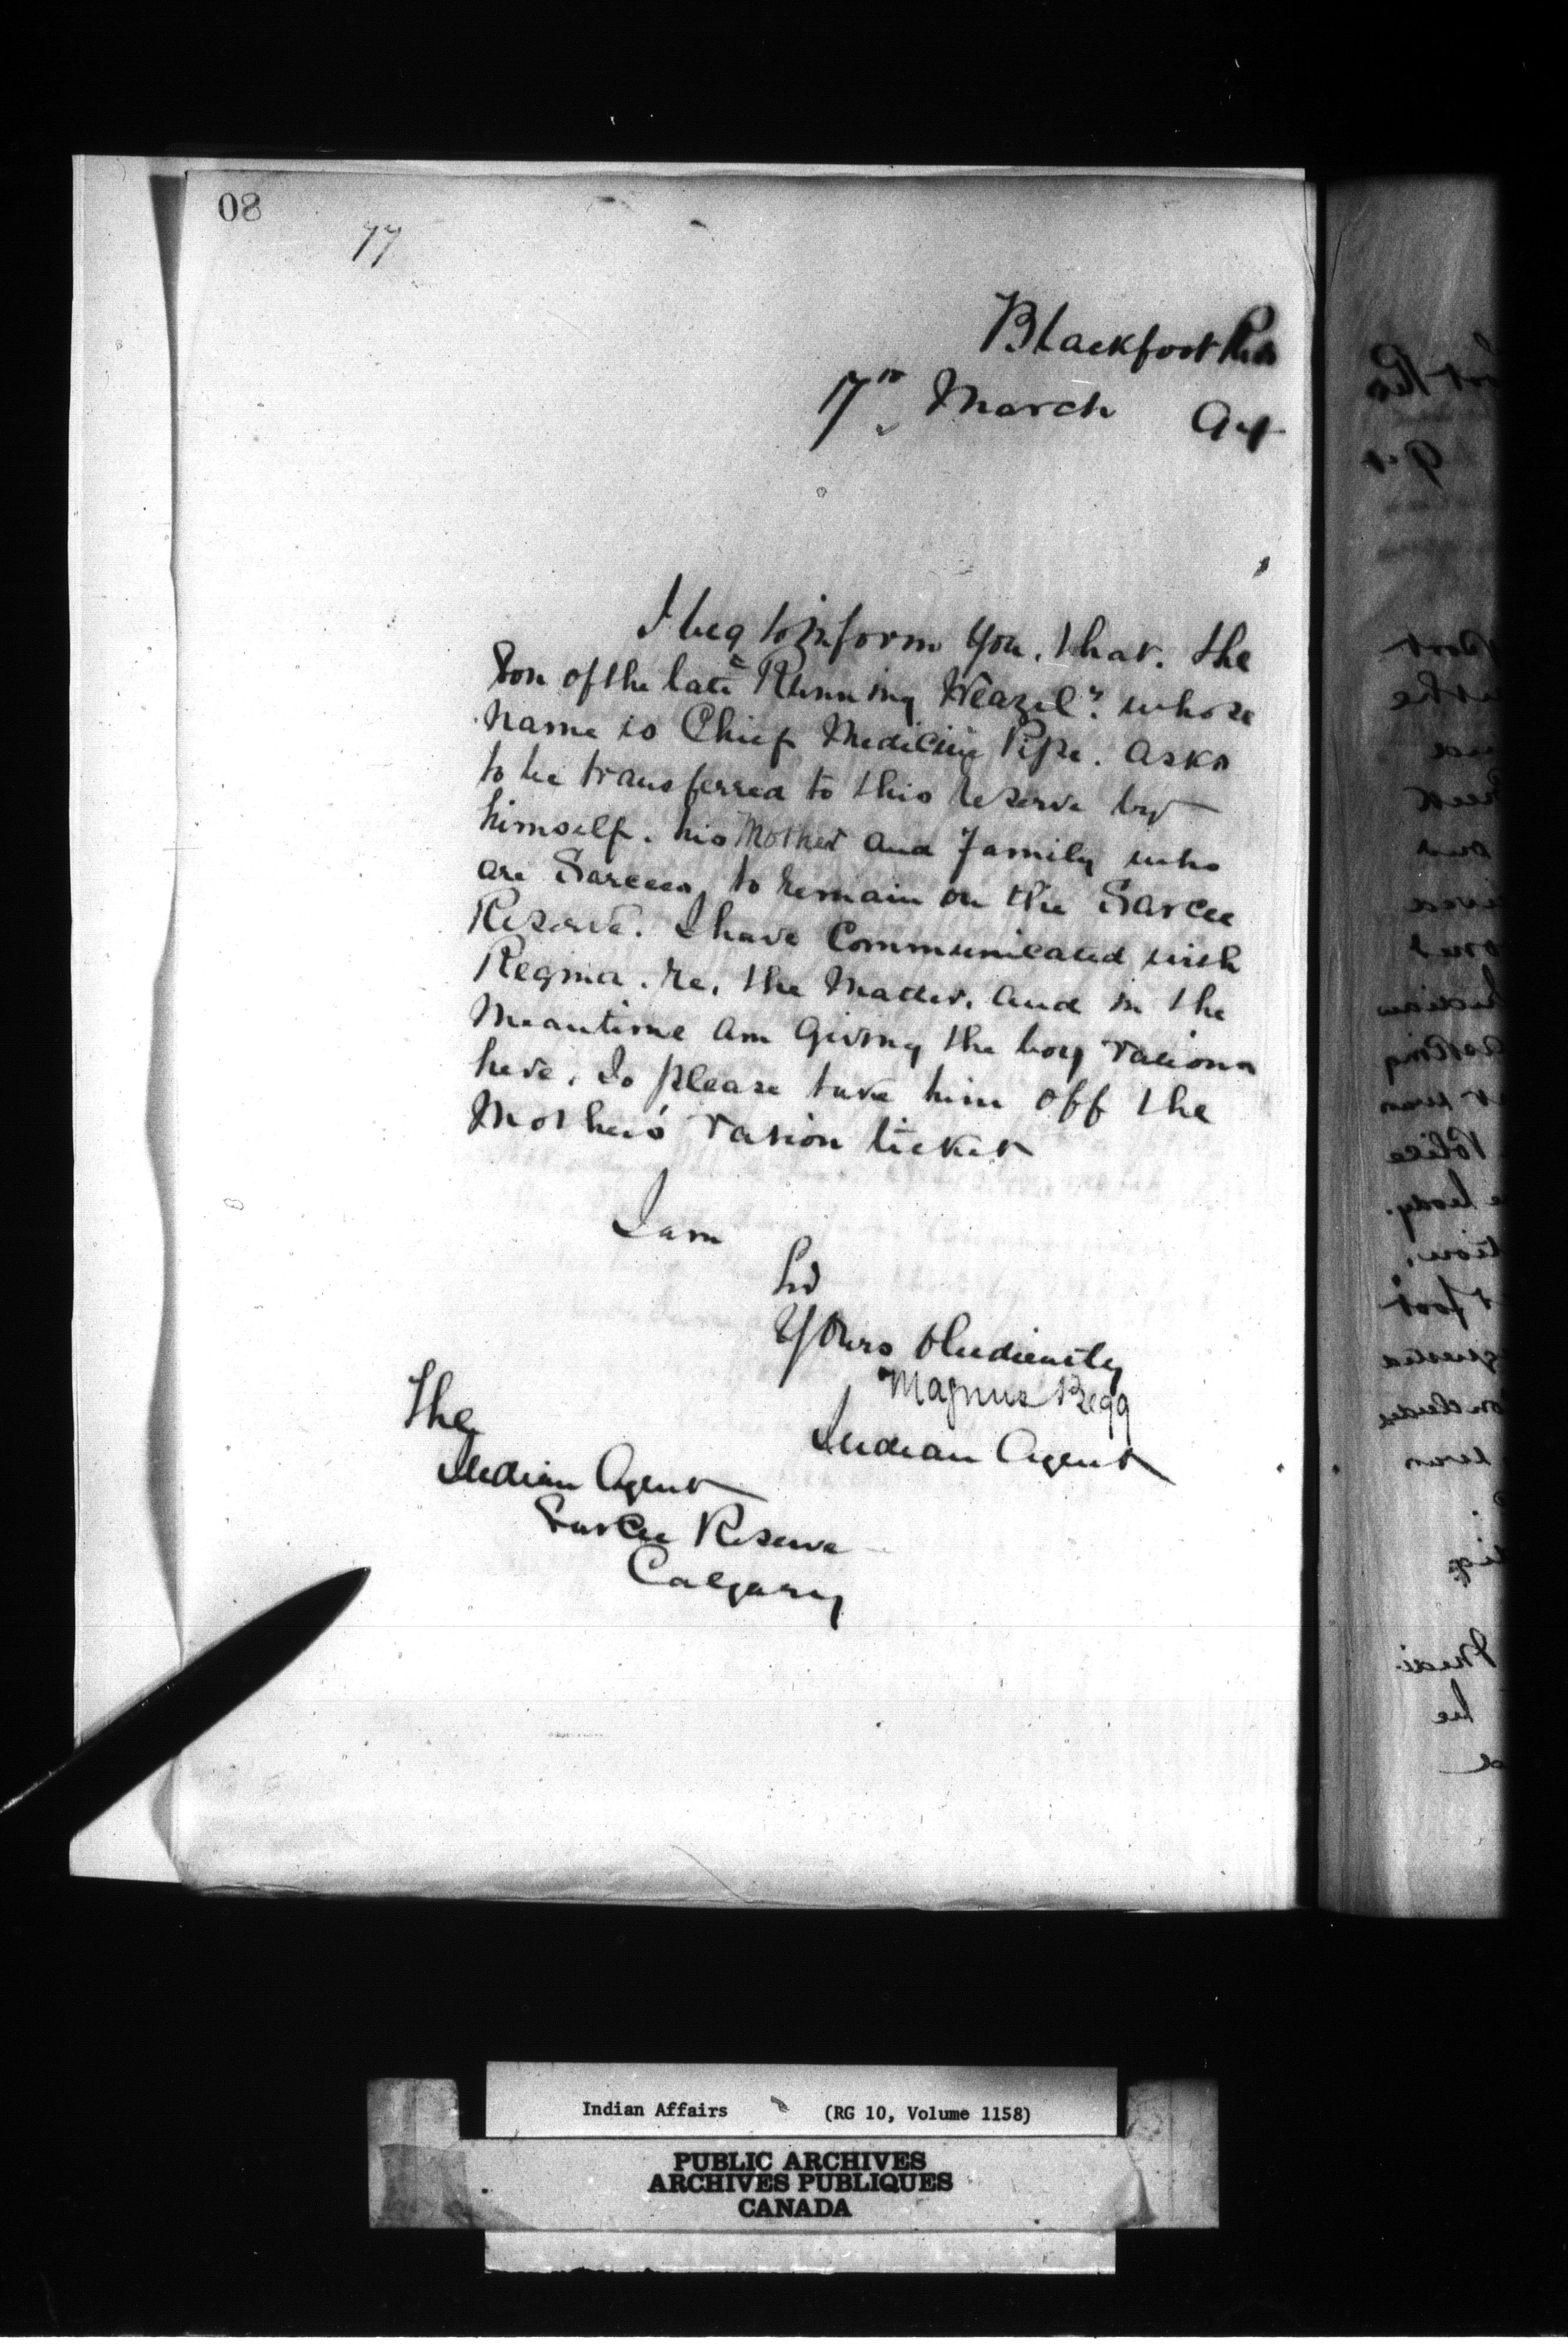 08
77
Blackfoot Res
17th March 94
I beg to inform you, that. the
Son of the late "Running Weazel". whose
name is Chief Medicine Pipe. asks
to be transferred to this reserve by
himself. his Mother and family who
are Sarcees, to remain on the Sarcee
Reserve. I have Communicated with
Regina. re. the Matter. and in the
Meantime am giving the boy rations
here. So please take him off the
Mother's ration ticket
I am
Sir
Yours Obediently
Magnus Begg
Indian Agent
The
Indian Agent
Sarcee Reserve
Calgary
Indian Affairs (RG 10, Volume 1158)
PUBLIC ARCHIVES
ARCHIVES PUBLIQUES
CANADA